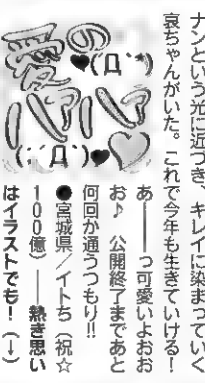 ナンという光に近づき、キレイに染まっていく
哀ちゃんがいた。これで今年も生きていける!
あ――っ可愛いよおお
お♪ 公開終了まであと
何回か通うつもり!!
●宮城県/イトち(祝☆
100億)――熱き思い
はイラストでも!(↓)
愛の
(Д`*)
(;´Д`)